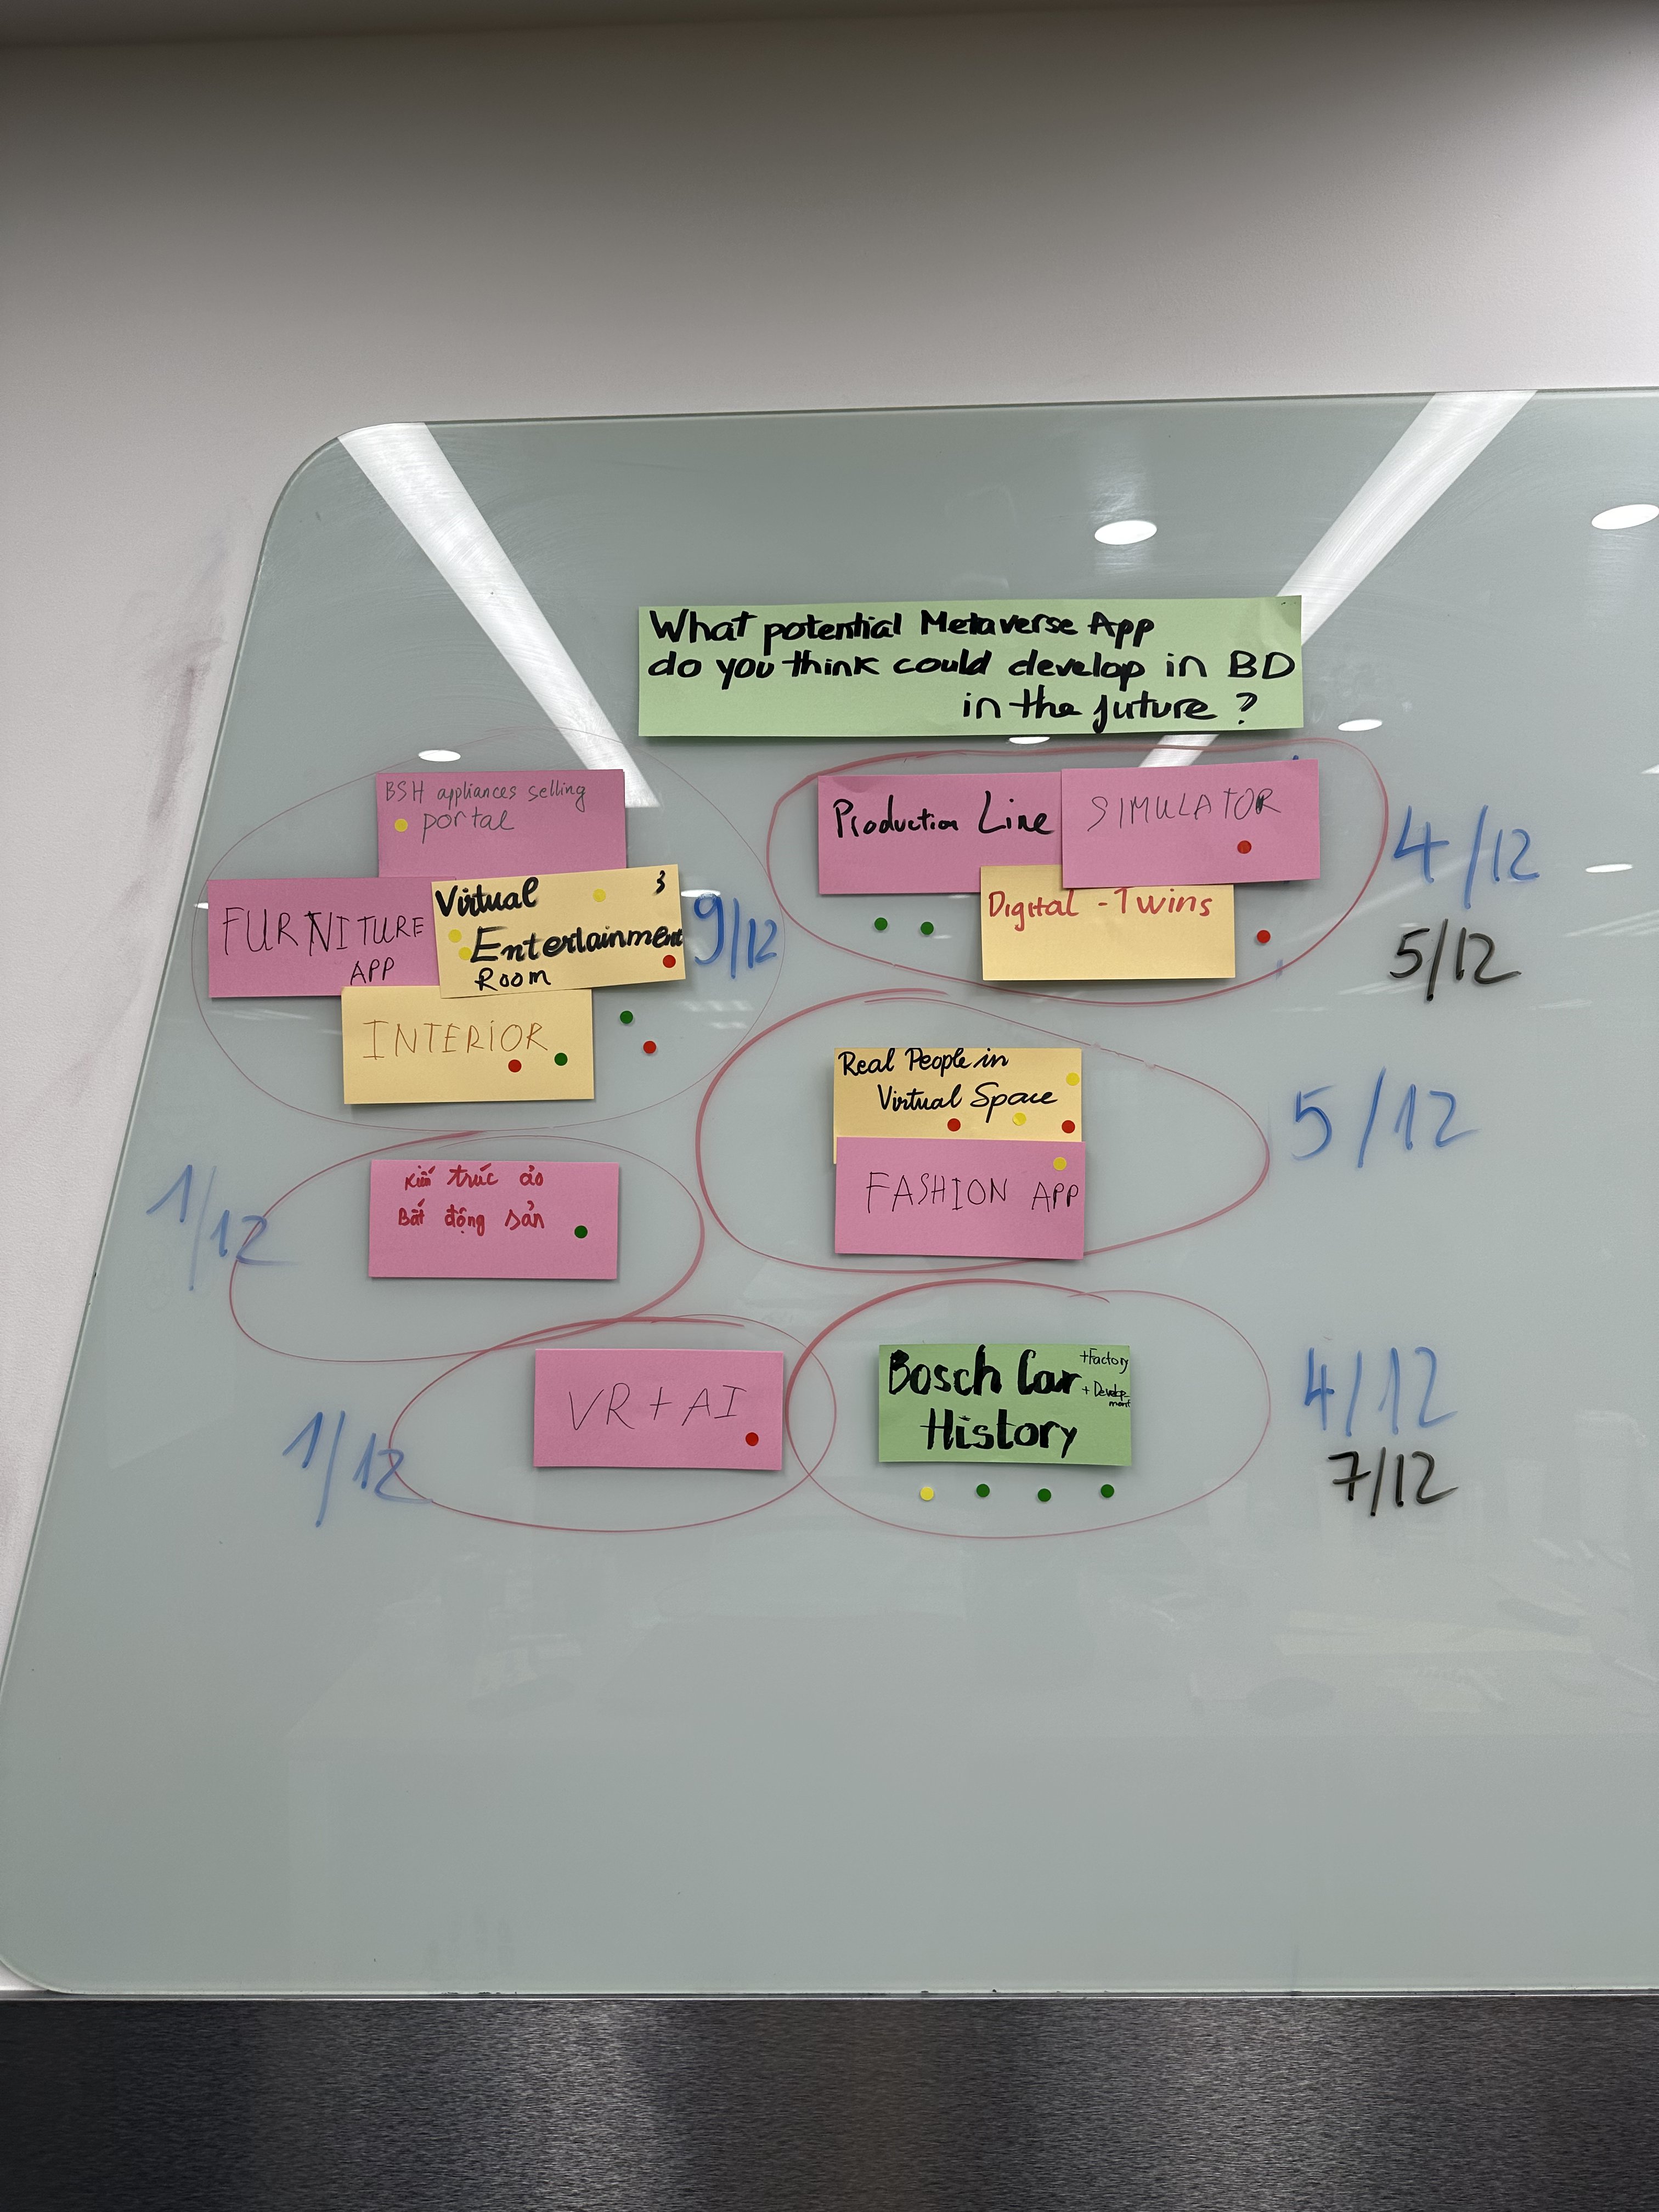 What potential Metaverse App
do you think could develop in BD
in the future ?
BSH appliances selling
portal
FURNITURE
APP
Virtual
Entertainment
Room
9/12
INTERIOR
Production Line
SIMULATOR
Digital - Twins
4/12
5/12
Real People in
Virtual Space
FASHION APP
5/12
Kiến trúc ảo
Bất động sản
1/12
VR + AI
1/12
Bosch Car
History
+ Factory
+ Develop-
ment
4/12
7/12